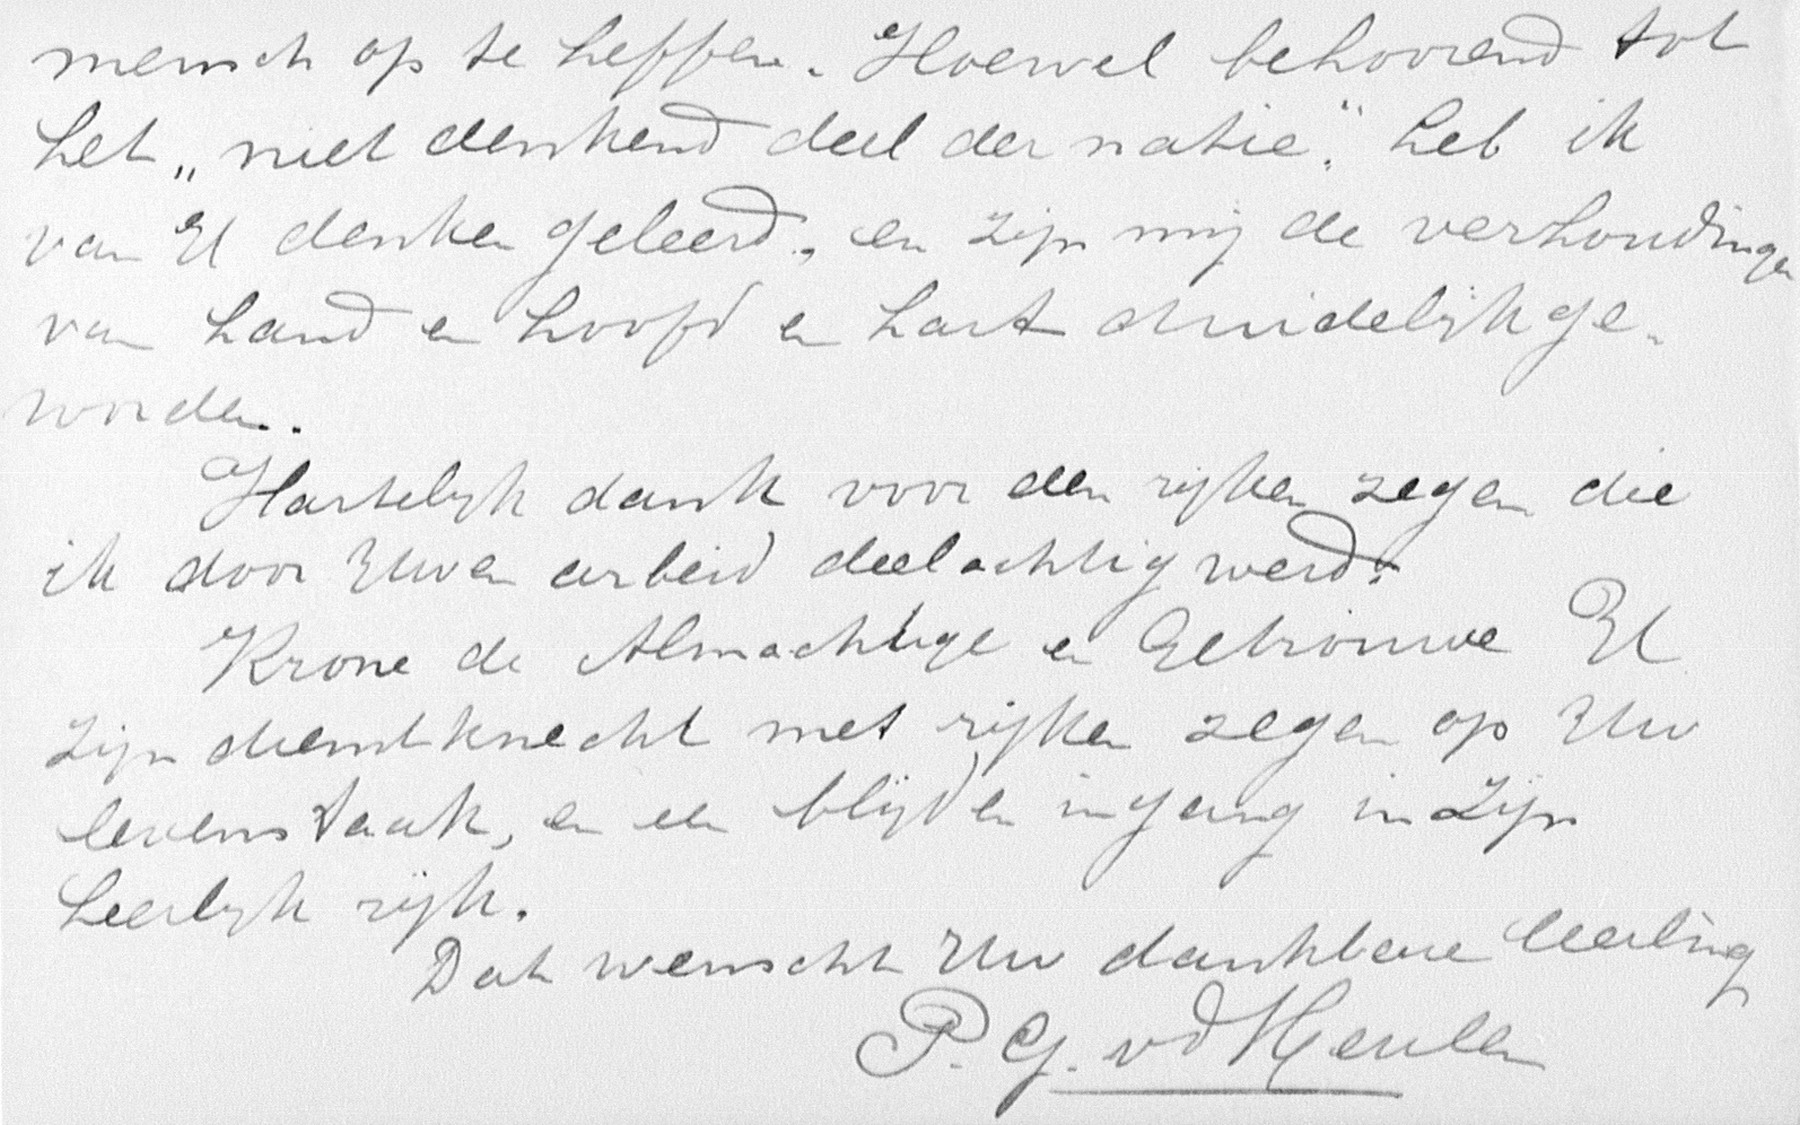 mensch op te heffen. Hoewel behoorend tot
het „niet denkend deel der natie." heb ik
van U denken geleerd, en zijn mij de verhoudingen
van hand en hoofd en hart duidelijk ge-
worden.
Hartelijk dank voor den rijken zegen die
ik door Uwen arbeid deelachtig werd.
Krone de Almachtige en Getrouwe U
zijn dienstknecht met rijken zegen op Uw
levenstaak, en een blijden ingang in Zijn
heerlijk rijk.
Dat wenscht Uw dankbare leerling
P. G. vd